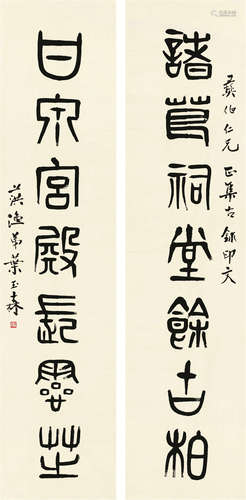 夔伯仁兄 正集古鉨印文
諸葛祠堂餘古柏
甘泉宮殿長靈芝
葓漁弟葉玉森